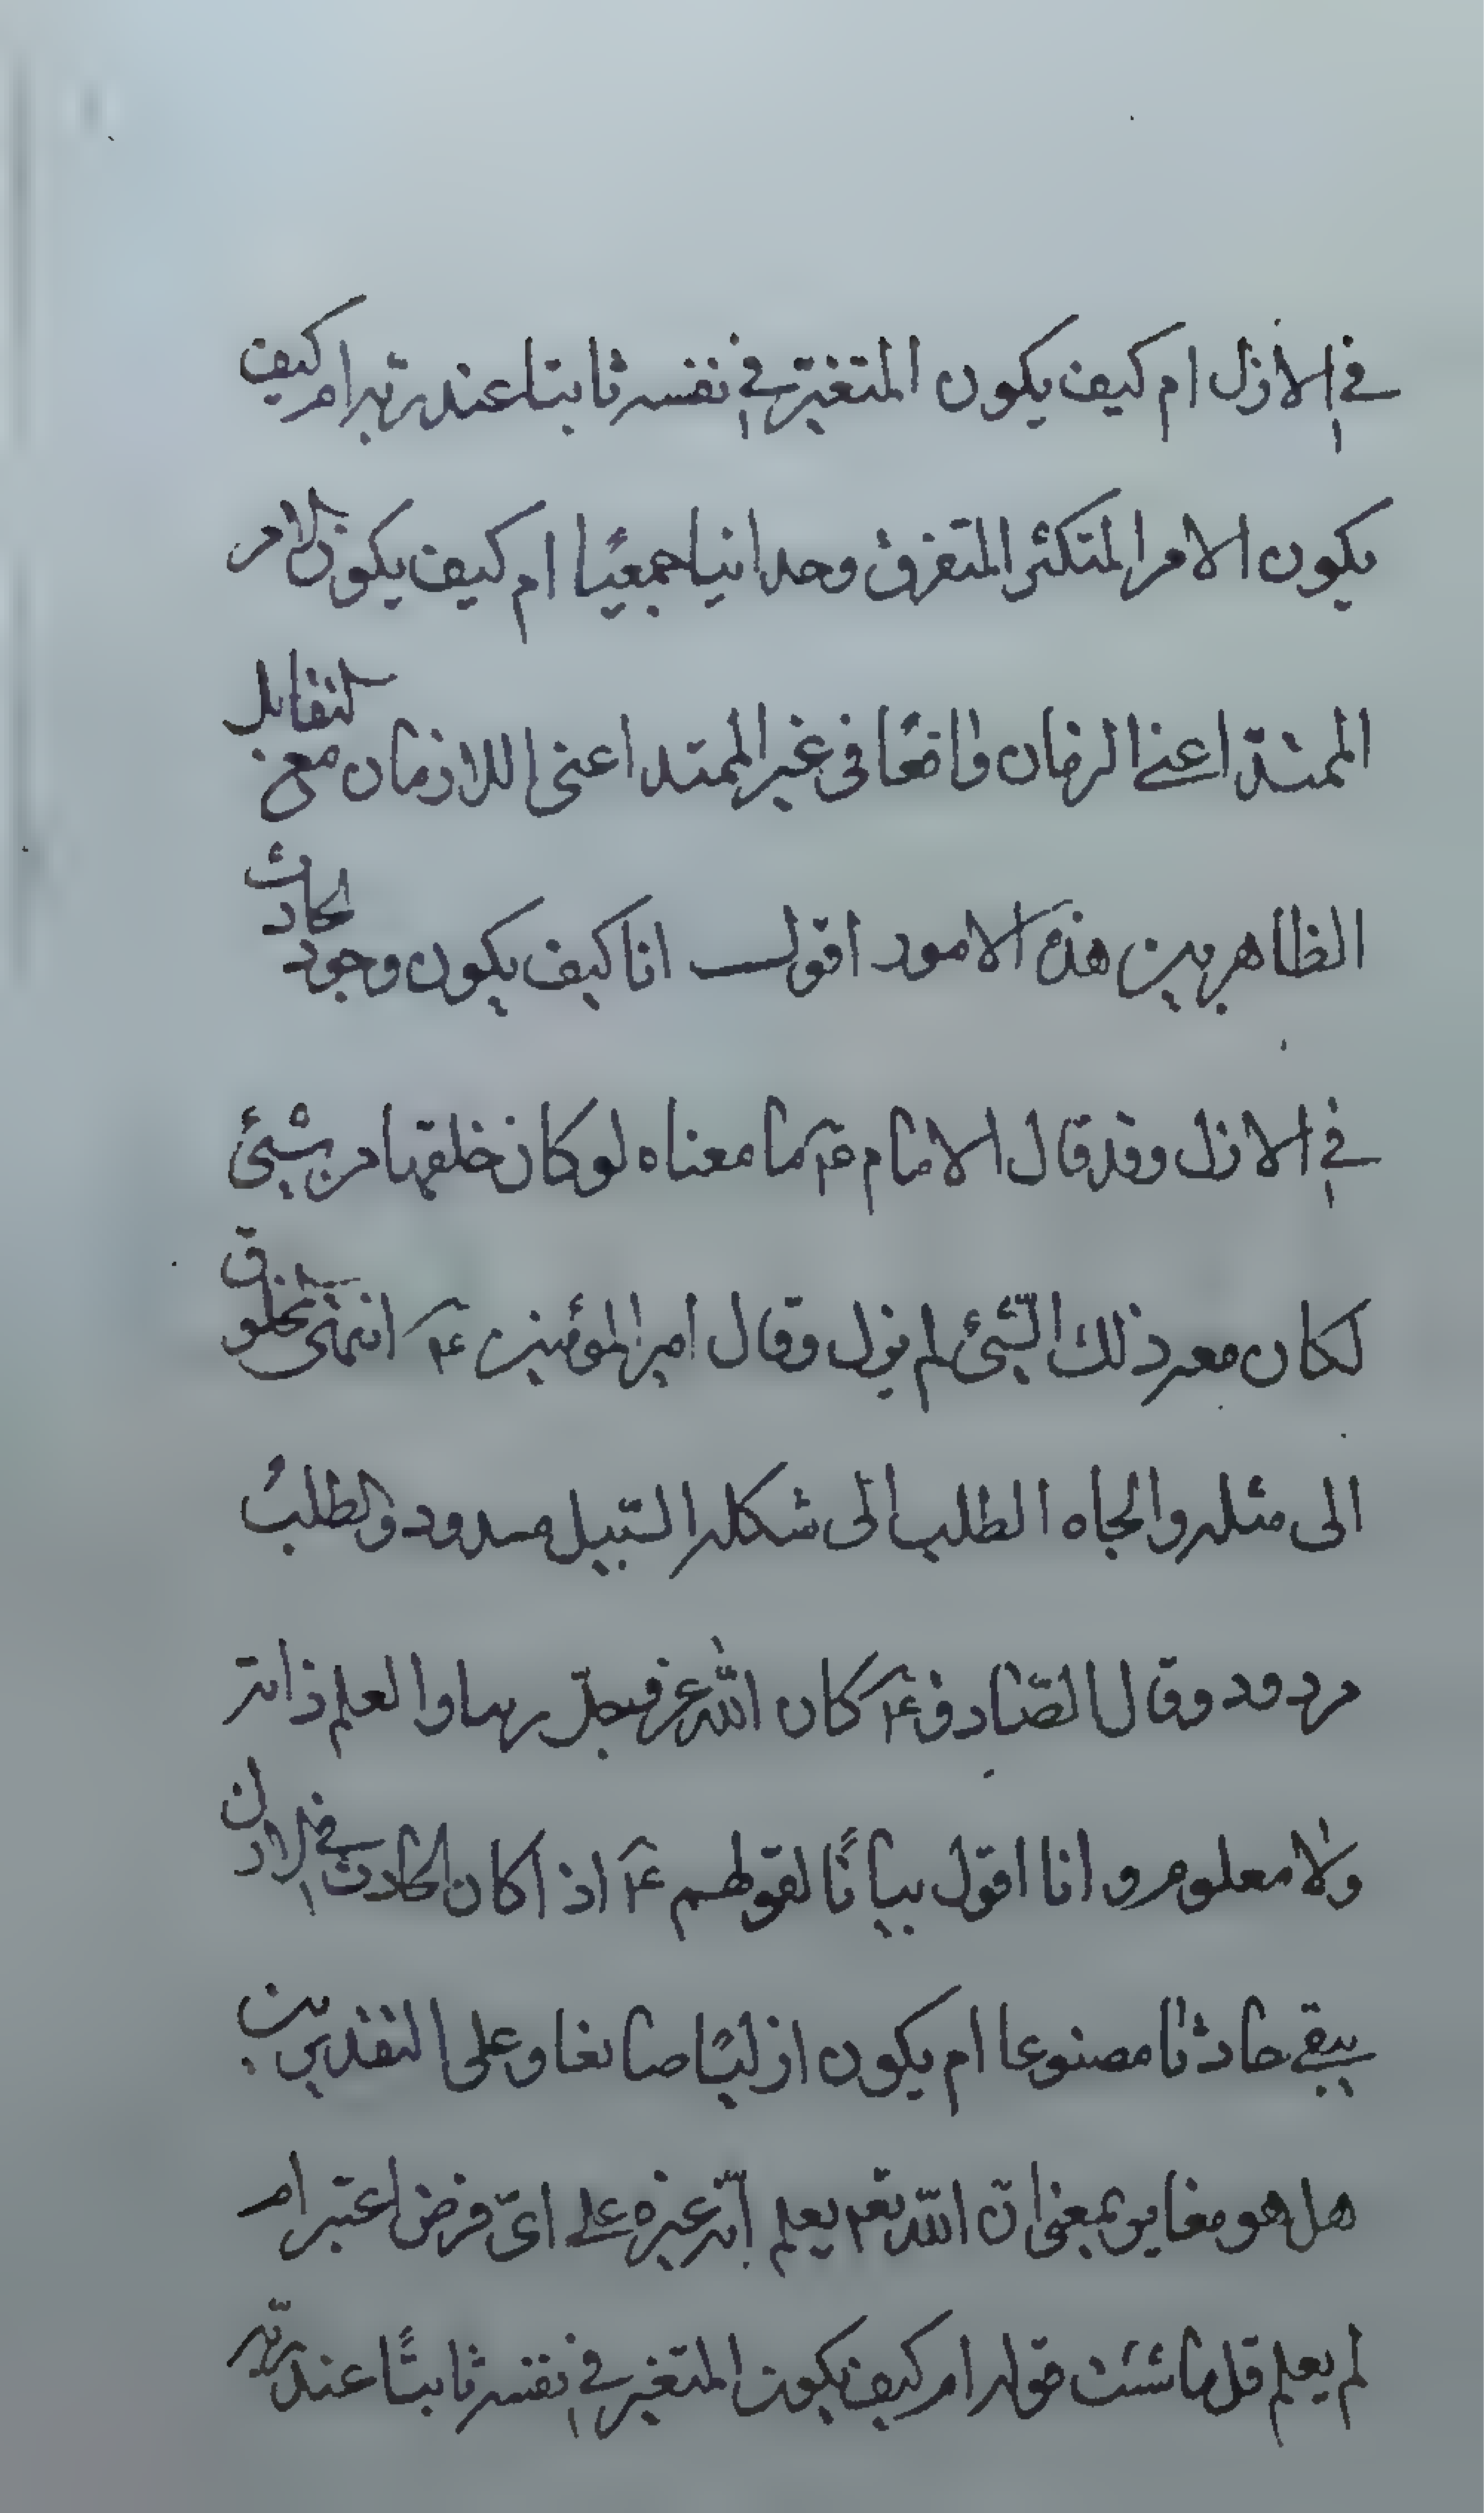 في الازل ام كيف يكون المتغير في نفسه ثابتا عند ربه ام كيف
يكون الامر المتكثر المتفرق وحدانيا جمعيًا ام كيف يكون الامر
الممتدّ اعني الزمان واقعًا في غير الممتد اعنى اللازمان مع التقابل
الظاهر بين هذه الامور اقول انا كيف يكون وجود الحادث
في الازل وقد قال الامام ع۴ ما معناه لو كان خلقها من شيئ
لكان معه ذلك الشّيئ لم يزل وقال امير المؤمنين ع۴ انتهى المخلوق
الى مثله والجاه الطلب الى شكله السّبيل مسدود والطلبُ
مردود وقال الصّادق ع۴ كان اللّه عز وجلّ ربنا والعلم ذاته
ولا معلوم وانا اقول بيانًا لقولهم ع۴ اذا كان الحادث في الازل
يبقى حادثا مصنوعا ام يكون ازليًا صانعا وعلى التقديرين
هل هو مغاير بمعنى انّ اللّه تعم يعلم انّه غيره على اىّ فرض اعتبر ام
لم يعلم قل ما شئت قوله ام كيف يكون المتغير في نفسه ثابتًا عند ربّه